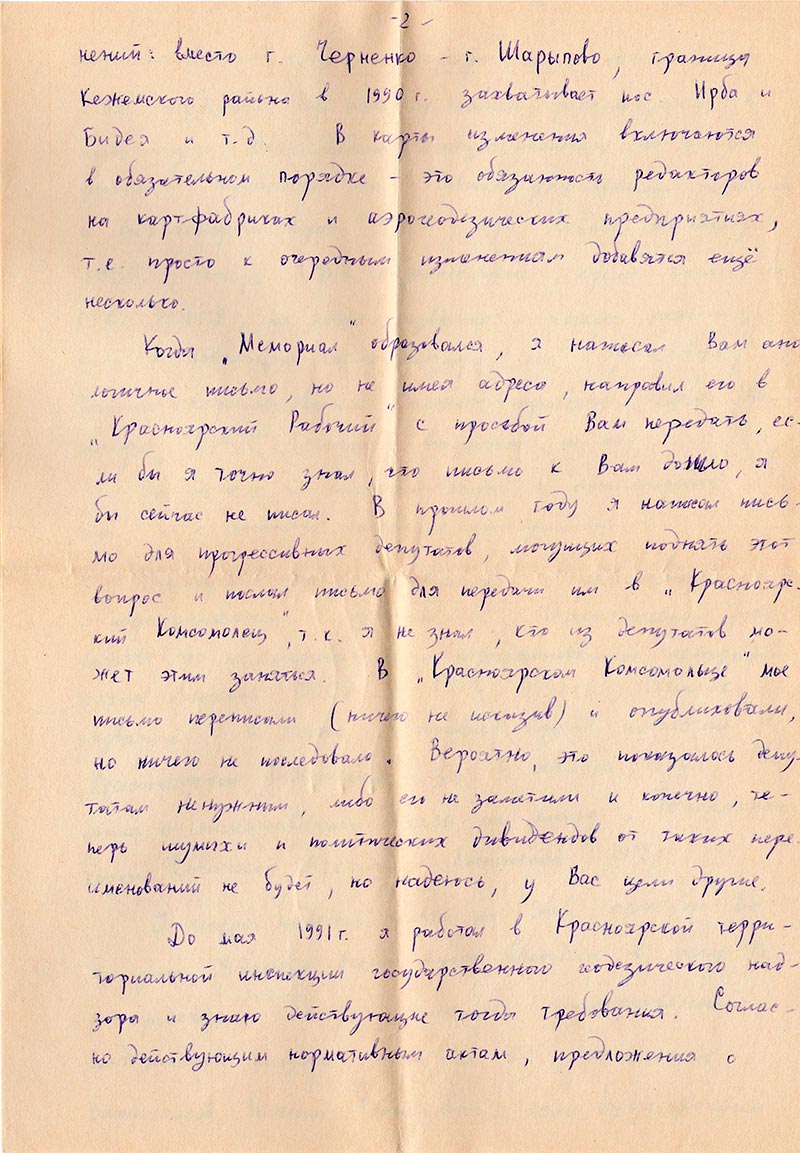 -2-
нений: вместо г. Черненко - г. Шарыпово, граница
Кежемского района в 1990 г. захватывает пос. Ирба и
Бидея и т.д. В карты изменения включаются
в обязательном порядке - это обязанность редакторов
на картфабриках и аэрогеодезических предприятиях,
т.е. просто к очередным изменениям добавятся ещё
несколько.
Когда „Мемориал" образовался, я написал Вам ана
логичное письмо, но не имея адреса, направил его в
„Красноярский Рабочий" с просьбой Вам передать, ес-
ли бы я точно знал, что письмо к Вам дошло, я
бы сейчас не писал. В прошлом году я написал пись-
мо для прогрессивных депутатов, могущих поднять этот
вопрос и послал письмо для передачи им в „Краснояр-
ский Комсомолец", т.к. я не знал, кто из депутатов мо-
жет этим заняться. В „Красноярском Комсомольце" мое
письмо переписали (ничего не исказив) и опубликовали,
но ничего не последовало. Вероятно, это показалось депу-
татам ненужным, либо его не заметили и конечно, те-
перь шумихи и политических дивидендов от таких пере
именований не будет, но надеюсь, у Вас цели другие.
До мая 1991 г. я работал в Красноярской терри-
ториальной инспекции государственного геодезического над-
зора и знаю действующие тогда требования. Соглас-
но действующим нормативным актам, предложения о